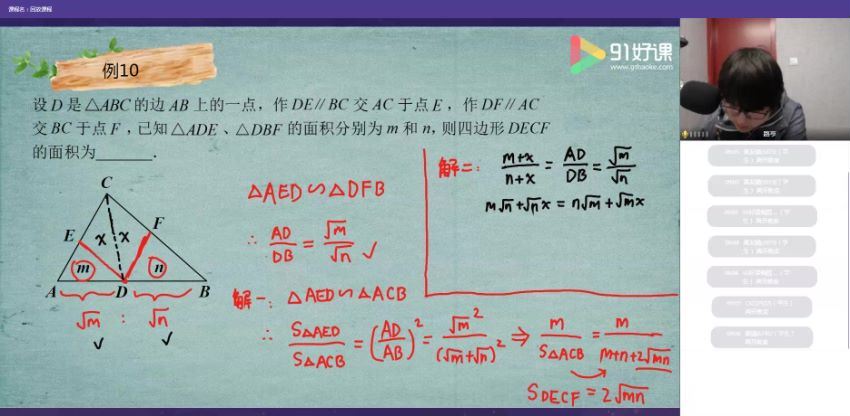 课程名：回放课程
例10
91好课
www.91haoke.com
设D是△ABC的边AB上的一点，作DE∥BC交AC于点E，作DF∥AC
交BC于点F，已知△ADE、△DBF的面积分别为m和n，则四边形DECF
的面积为______．
C
E
F
x x
m
n
A
D
B
√m : √n
✓ ✓
△AED∽△DFB
∴ AD/DB = √m/√n ✓
解一: △AED∽△ACB
∴ S△AED/S△ACB = (AD/AB)² = √m²/(√m+√n)² ⇒ m/S△ACB = m/(m+n+2√mn)
S DECF = 2√mn
解二: (m+x)/(n+x) = AD/DB = √m/√n
m√n+√n x = n√m+√m x